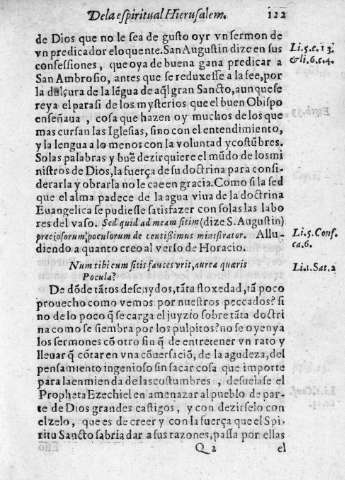 De la espiritual Hierusalem. 122
de Dios que no le sea de gusto oyr vn sermon de
vn predicador eloquente. San Augustin dize en sus
confessiones, que oya de buena gana predicar a
San Ambrosio, antes que se reduxesse a la fee, por
la dulçura de la lẽgua de aq̃l gran Sancto, aunque se
reya el para si de los mysterios que el buen Obispo
enseñaua, cosa que hazen oy muchos de los que
mas cursan las Iglesias, sino con el entendimiento,
y la lengua a lo menos con la voluntad y costũbres.
Solas palabras y buẽ dezir quiere el mũdo de los mi
nistros de Dios, la fuerça de su doctrina para consi-
derarla y obrarla no le cae en gracia. Como si la sed
que el alma padece de la agua viua de la doctrina
Euangelica se pudiesse satisfazer con solas las labo
res del vaso. Sed quid ad meam sitim (dize S. Augustin)
preciosorum poculorum decentissimus ministrator. Allu-
diendo a quanto creo al verso de Horacio.
Num tibi cum sitis fauces vrit, aurea quæris
Pocula?
De dõde tãtos descuydos, tãta floxedad, tã poco
prouecho como vemos por nuestros peccados? si
no de lo poco q̃ se carga el juyzio sobre tãta doctri
na como se siembra por los pulpitos? no se oyen ya
los sermones cõ otro fin q̃ de entretener vn rato y
lleuar q̃ cõtar en vna cõuersaciõ, de la agudeza, del
pensamiento ingenioso sin sacar cosa que importe
para la enmienda de las costumbres, desuelase el
Propheta Ezechiel en amenazar al pueblo de par-
te de Dios grandes castigos, y con dezirselo con
el zelo, que es de creer y con la fuerça que el Spi-
ritu Sancto sabria dar a sus razones, passa por ellas
Q 2 el
Li. 5. c. 13.
& li. 6. c. 4.
Li. 5. Conf.
ca. 6.
Li. 1. Sat. 2